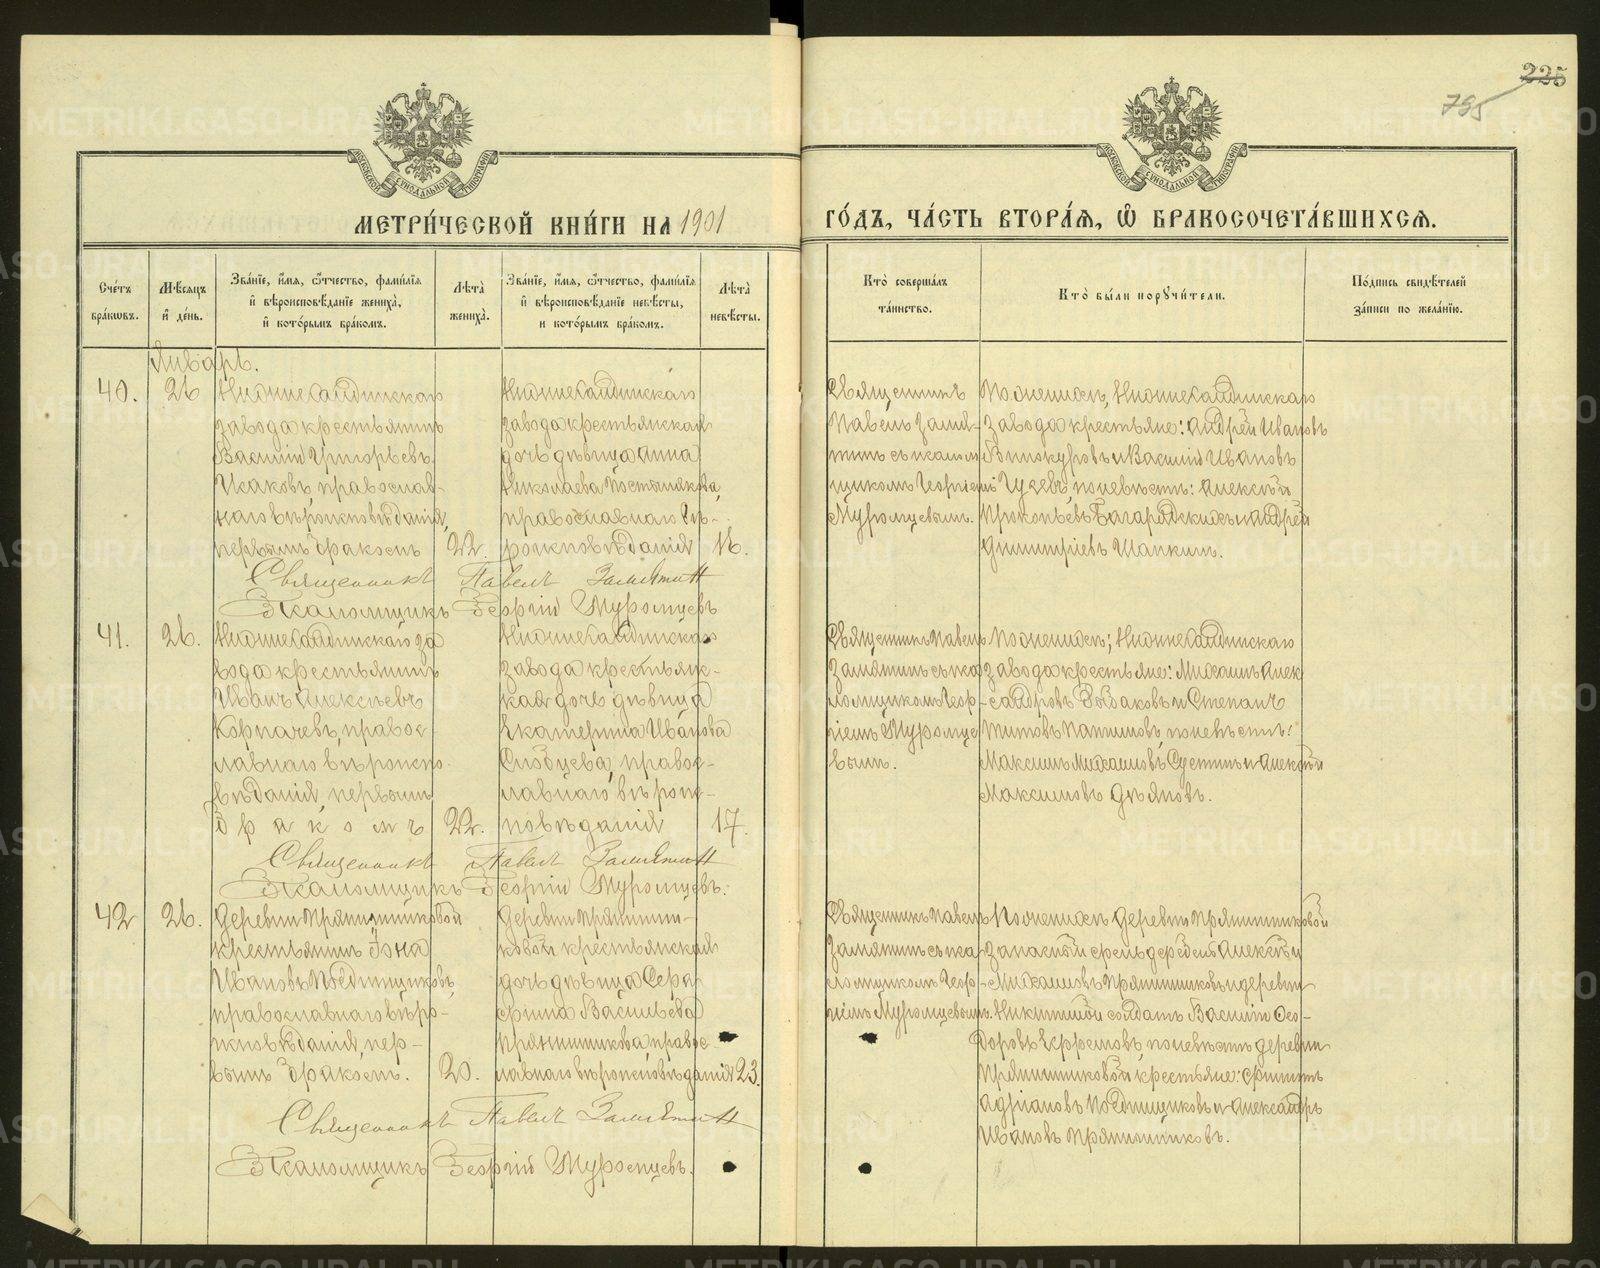 225
795
МЕТРИ́ЧЕСКОЙ КНИ́ГИ НА 1901
ГО́ДЪ, ЧА́СТЬ ВТОРА́Я, Ѽ БРАКОСОЧЕТА́ВШИХСЯ.
Сче́тъ бра́ковъ.
Мѣ́сяцъ и҆ де́нь.
Зва́нїе, и҆́мя, ѻ҆́тчество, фами́лїя
и҆ вѣроисповѣ́данїе жениха̀,
и҆ кото́рымъ бра́комъ.
Лѣта̀ жениха̀.
Зва́нїе, и҆́мя, ѻ҆́тчество, фами́лїя
и҆ вѣроисповѣ́данїе невѣ́сты,
и кото́рымъ бра́комъ.
Лѣта̀ невѣ́сты.
Кто̀ соверша́лъ та́инство.
Кто̀ бы́ли поручи́тели.
По́дпись свидѣ́телей за́писи по жела́нїю.
Январь.
40.
26
Нижнесалдинскаго
завода крестьянинъ
Василій Григорьевъ
Исаковъ, православ-
наго вѣроисповѣданія,
первымъ бракомъ
22.
Нижнесалдинскаго
завода крестьянская
дочь дѣвица Анна
Николаева Постылякова,
православнаго вѣ-
роисповѣданія
16.
Священникъ
Павелъ Замя-
тинъ съ псалом-
щикомъ Георгіемъ
Муромцевымъ.
По женихѣ, Нижнесалдинскаго
завода крестьяне: Андрей Ивановъ
Винокуровъ и Василій Ивановъ
Гусевъ, по невѣстѣ: Алексѣй
Прокопьевъ Багарядскихъ и Андрей
Димитріевъ Шапкинъ.
Священникъ Павелъ Замятин
Псаломщикъ Георгій Муромцевъ
41.
26.
Нижнесалдинскаго за
вода крестьянинъ
Иванъ Алексѣевъ
Корпачевъ, правос-
лавнаго вѣроиспо-
вѣданія, первымъ
бракомъ
22.
Нижнесалдинскаго
завода крестьянс-
кая дочь дѣвица
Екатерина Иванова
Слобцева, правос-
лавнаго вѣроис-
повѣданія
17.
Священникъ Павелъ
Замятинъ съ пса
ломщикомъ Геор-
гіемъ Муромце
вымъ.
По женихѣ; Нижнесалдинскаго
завода крестьяне: Михаилъ Алек
сандровъ и Степанъ
Титовъ, по невѣстѣ:
Максимъ Михаиловъ Сустинъ и Алексѣй
Максимовъ Дѣяновъ.
Священникъ Павелъ Замятин
Псаломщикъ Георгій Муромцевъ.
42
26.
Деревни Прянишниковой
крестьянинъ Іона
Ивановъ Подпищиковъ,
православнаго вѣро-
исповѣданія, пер-
вымъ бракомъ.
20.
Деревни Прянишни-
ковой крестьянская
дочь дѣвица Сера
фима Васильева
Прянишникова, правос
лавнаго вѣроисповѣданія
23.
Священникъ Павелъ
Замятинъ съ пса-
ломщикомъ Геор-
гіемъ Муромцевымъ.
По женихѣ деревни Прянишниковой
запасный Алексѣй
Михаиловъ Прянишниковъ и деревни
Никитиной солдатъ Василій Фео-
доровъ Ефремовъ, по невѣстѣ деревни
Прянишниковой крестьяне: Филиппъ
Адриановъ Подпищиковъ и Александръ
Ивановъ Прянишниковъ.
Священникъ Павелъ Замятин
Псаломщикъ Георгій Муромцевъ.